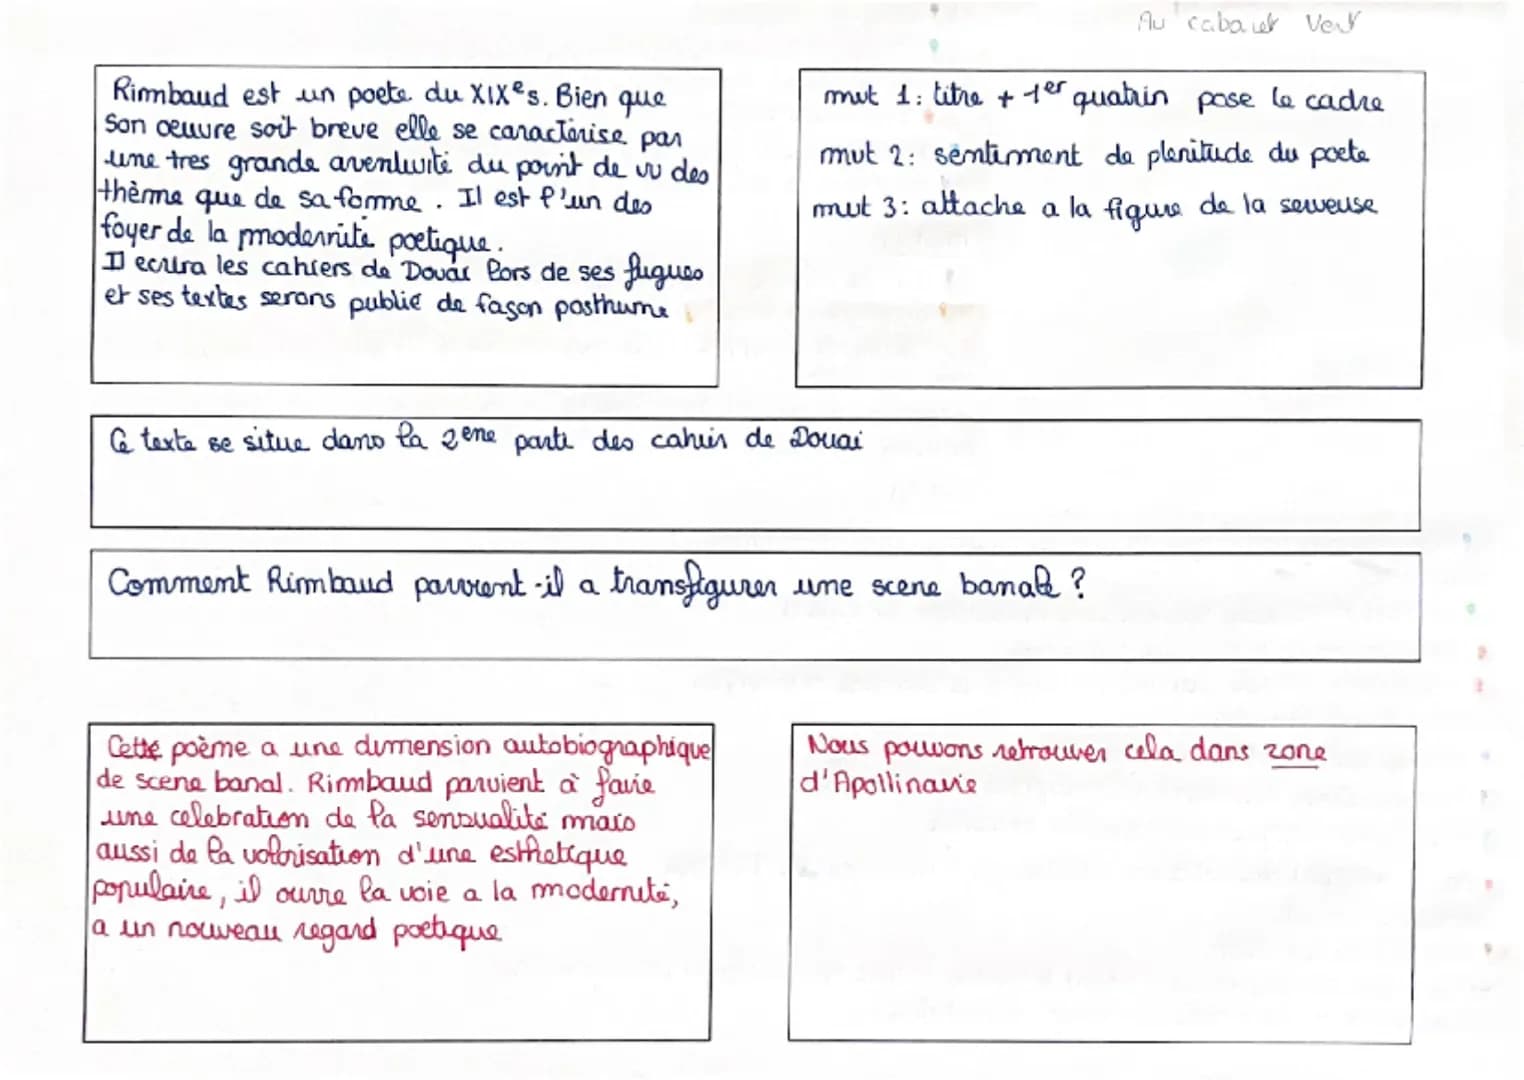 Au cabaret Vert
Rimbaud est un poete du XIXe s. Bien que
son oeuvre soit breve elle se caractérise par
une tres grande aventuité du point de vu des
thèrme que de sa forme. Il est l'un des
foyer de la modernité poetique.
Il ecrira les cahiers de Douai lors de ses fugues
et ses textes serons publié de façon posthume
mvt 1: titre + 1er quatrin pose le cadre
mvt 2: sentiment de plenitude du poete
mvt 3: attache a la figure de la serveuse
Ce texte se situe dans la 2eme partie des cahiers de Douai
Comment Rimbaud parvient-il a transfigurer une scene banale ?
Cette poème a une dimension autobiographique
de scene banal. Rimbaud parvient à faire
une celebration de la sensualité mais
aussi de la valorisation d'une esthetique
populaire, il ouvre la voie a la modernité,
a un nouveau regard poetique
Nous pouvons retrouver cela dans zone
d'Apollinaire